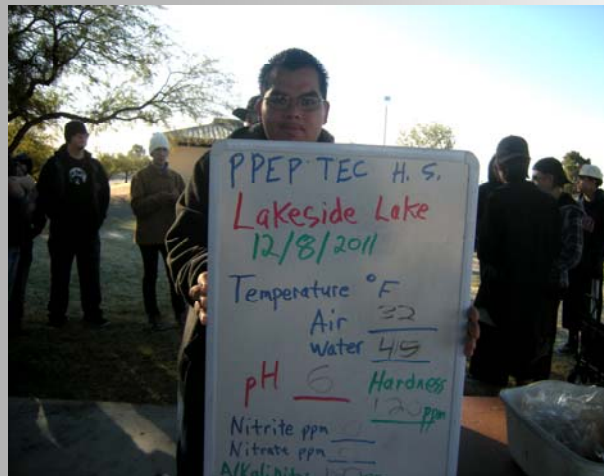 PPEP TEC H. S.
Lakeside Lake
12/8/2011
Temperature °F
Air 32
Water 45
pH 6 Hardness
120 ppm
Nitrite ppm 0
Nitrate ppm 0
Alkalinity